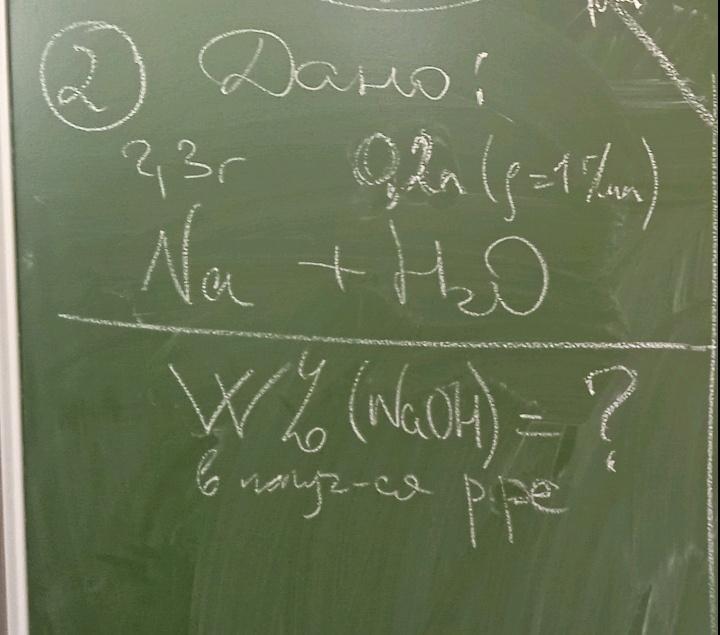 ② Дано:
2,3г 0,2л (ρ=1 г/мл)
Na + H₂O
W% (NaOH) = ?
в получ-ся р-ре